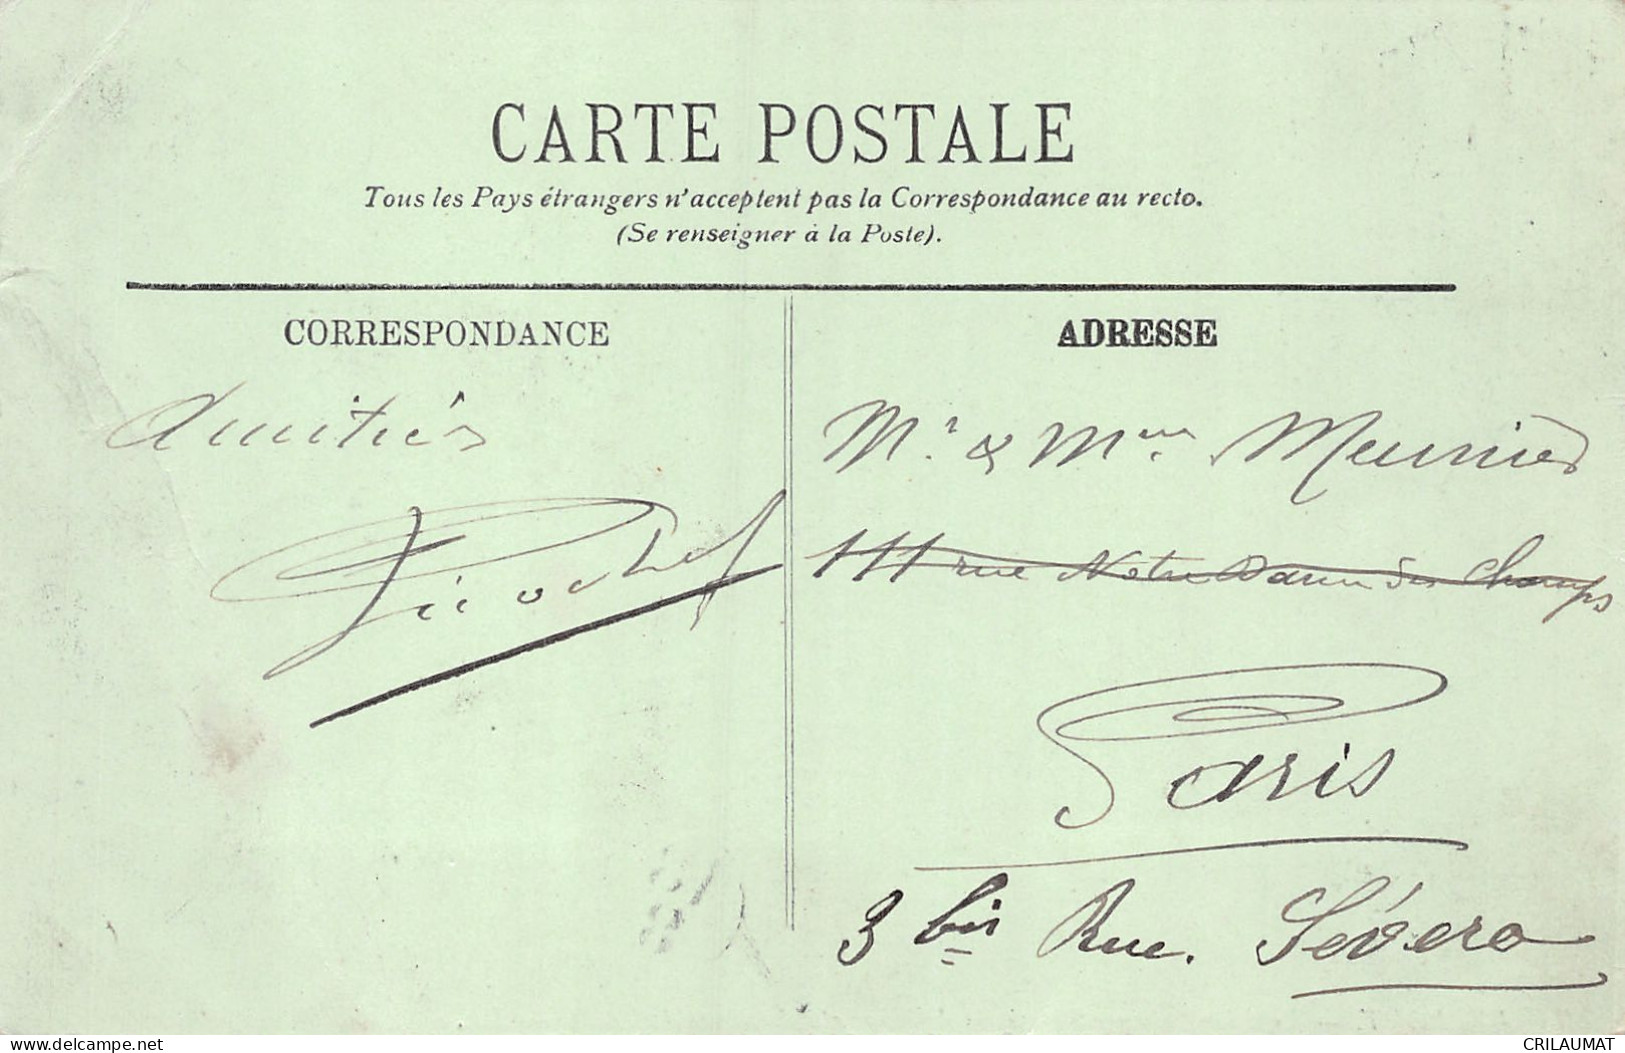 CARTE POSTALE
Tous les Pays étrangers n'acceptent pas la Correspondance au recto.
(Se renseigner à la Poste).
CORRESPONDANCE
Amitiés
ADRESSE
Mr & Mme Meunier
111 rue Notre Dame des Champs
Paris
3 bis Rue. Sévero
delcampe.net
CRILAUMAT